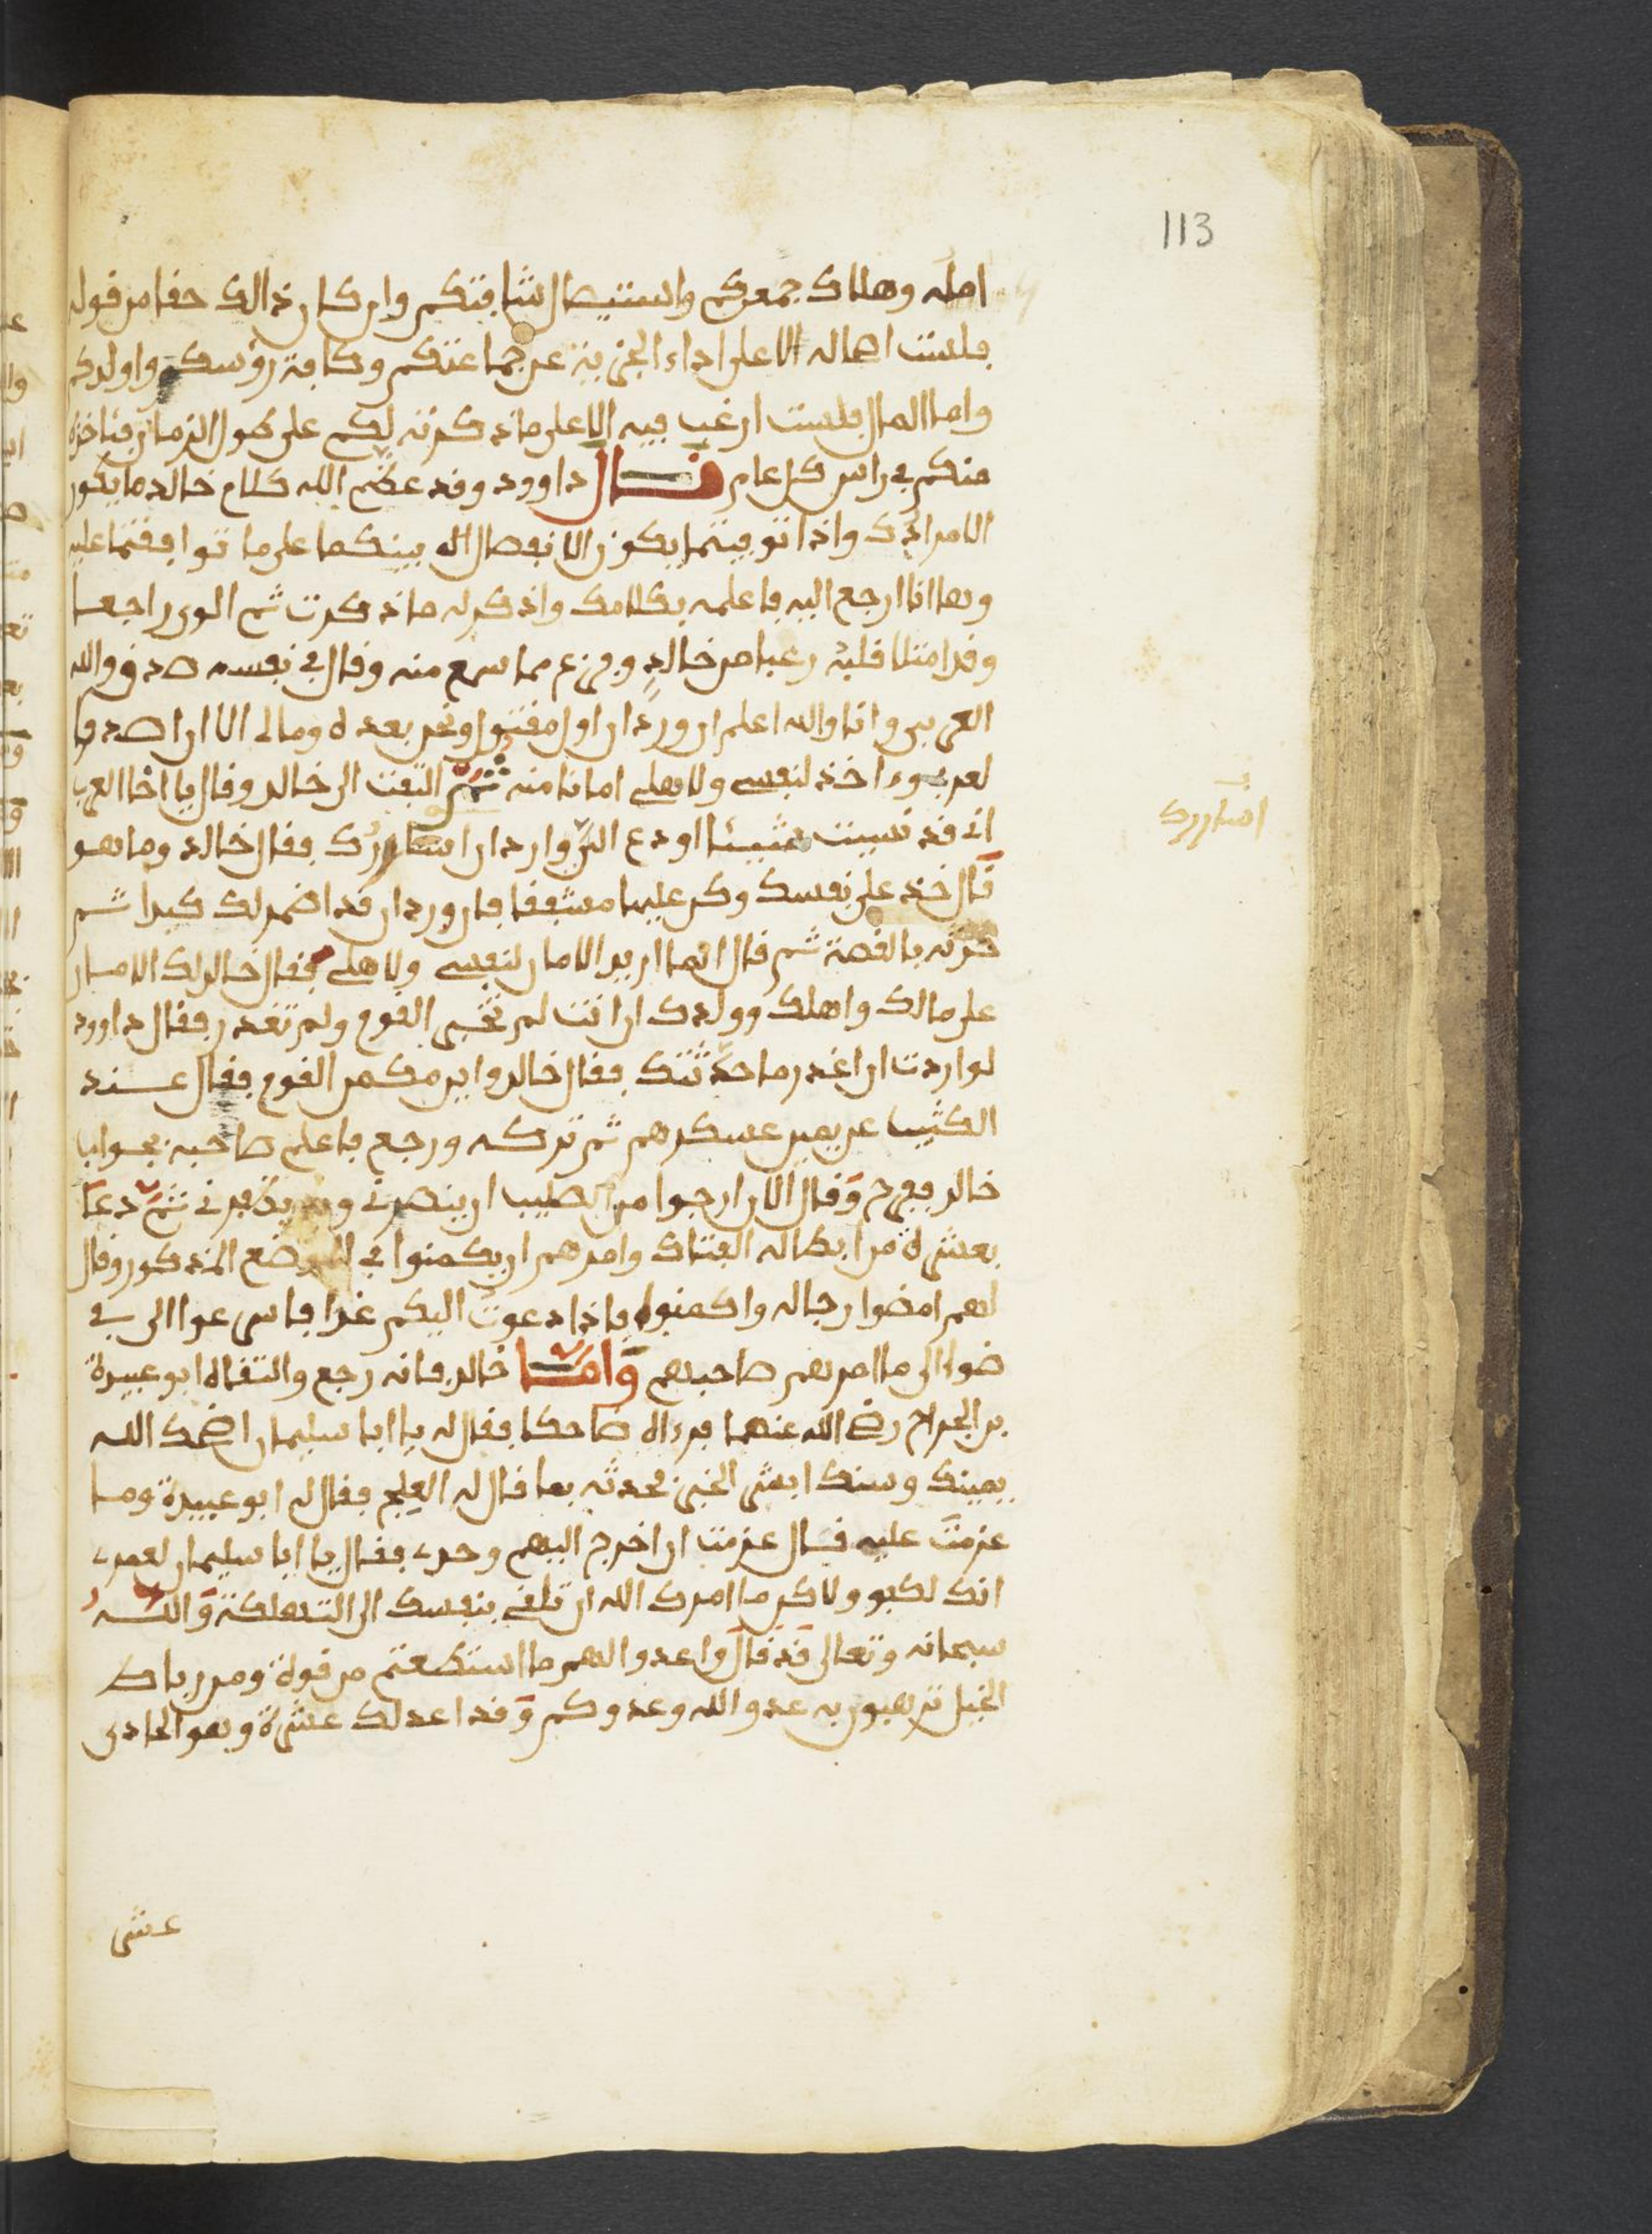 113
امله وهلاك جمعكم واستيصال شافتكم وان كان ذالك حقا من قوله
فلست اصاله الا على اداء الجزية عن جماعتكم وكافة رؤسكم واولادكم
واما المال فلست ارغب فيه الا على ما ذكرته لكم على طول الزمان فناخذه
منكم في راس كل عام قال داوود وقد عظم الله كلام خالد ما يكون
الامر لذك واذا توفيتما يكون الانفصال بينكما على ما توافقتما عليه
وها انا ارجع اليه فاعلمه بكلامك واذكر له ما ذكرت ثم الوى راجعا
وقد امتلا قلبه رعبا من خالد وفزع مما سمع منه وقال في نفسه صدق والله
العربي وانا والله اعلم ان وردان اول مقتول ونحن بعده ومالى الا ان اصدق
لعربي واخذ لنفسي ولاهلي امانا منه ثم التفت الى خالد وقال يا اخا العرب
اني قد نسيت شيئا اودع الي وارد ان اساررك فقال خالد وما هو
اساررك
قال خذ على نفسك وكن عليها مشفقا فان وردان قد اضمر لك كيدا ثم
حدثه بالقصة ثم قال انما اريد الامان لنفسي ولاهلي فقال خالد لك الامان
على مالك واهلك وولدك ان انت لم تخبر القوم ولم تغدر فقال داوود
لو اردت ان اغدر ما حدثتك فقال خالد واين مكمن القوم فقال عند
الكثيب عن يمين عسكرهم ثم تركه ورجع فاعلم صاحبه بجواب
خالد ففرح وقال الان ارجوا من الصليب ان ينصرني ويظفرني ثم دعا
بعشرة من ابطاله الفتاك وامرهم ان يكمنوا في الموضع المذكور وقال
لهم امضوا رجاله واكمنوا فاذا دعوت اليكم غدا فاسرعوا الى في
ضوا الى ما امرهم صاحبهم واما خالد فانه رجع والتقاه ابو عبيدة
بن الجراح رضي الله عنهما فرءاه ضاحكا فقال له يا ابا سليمان اضحك الله
يمينك وسنك ابشر الخبر فحدثه بما قال له العلج فقال له ابو عبيدة وما
عزمت عليه قال عزمت ان اخرج اليهم وحدى فقال يا ابا سليمان لعمرى
انك لكبو ولاكن ما امرك الله ان تلقي بنفسك الى التهلكة والله
سبحانه وتعالى قد قال واعدوا لهم ما استطعتم من قوة ومن رباط
الخيل ترهبون به عدو الله وعدوكم وقد اعد لك عشرة وهو الحادى
عشر